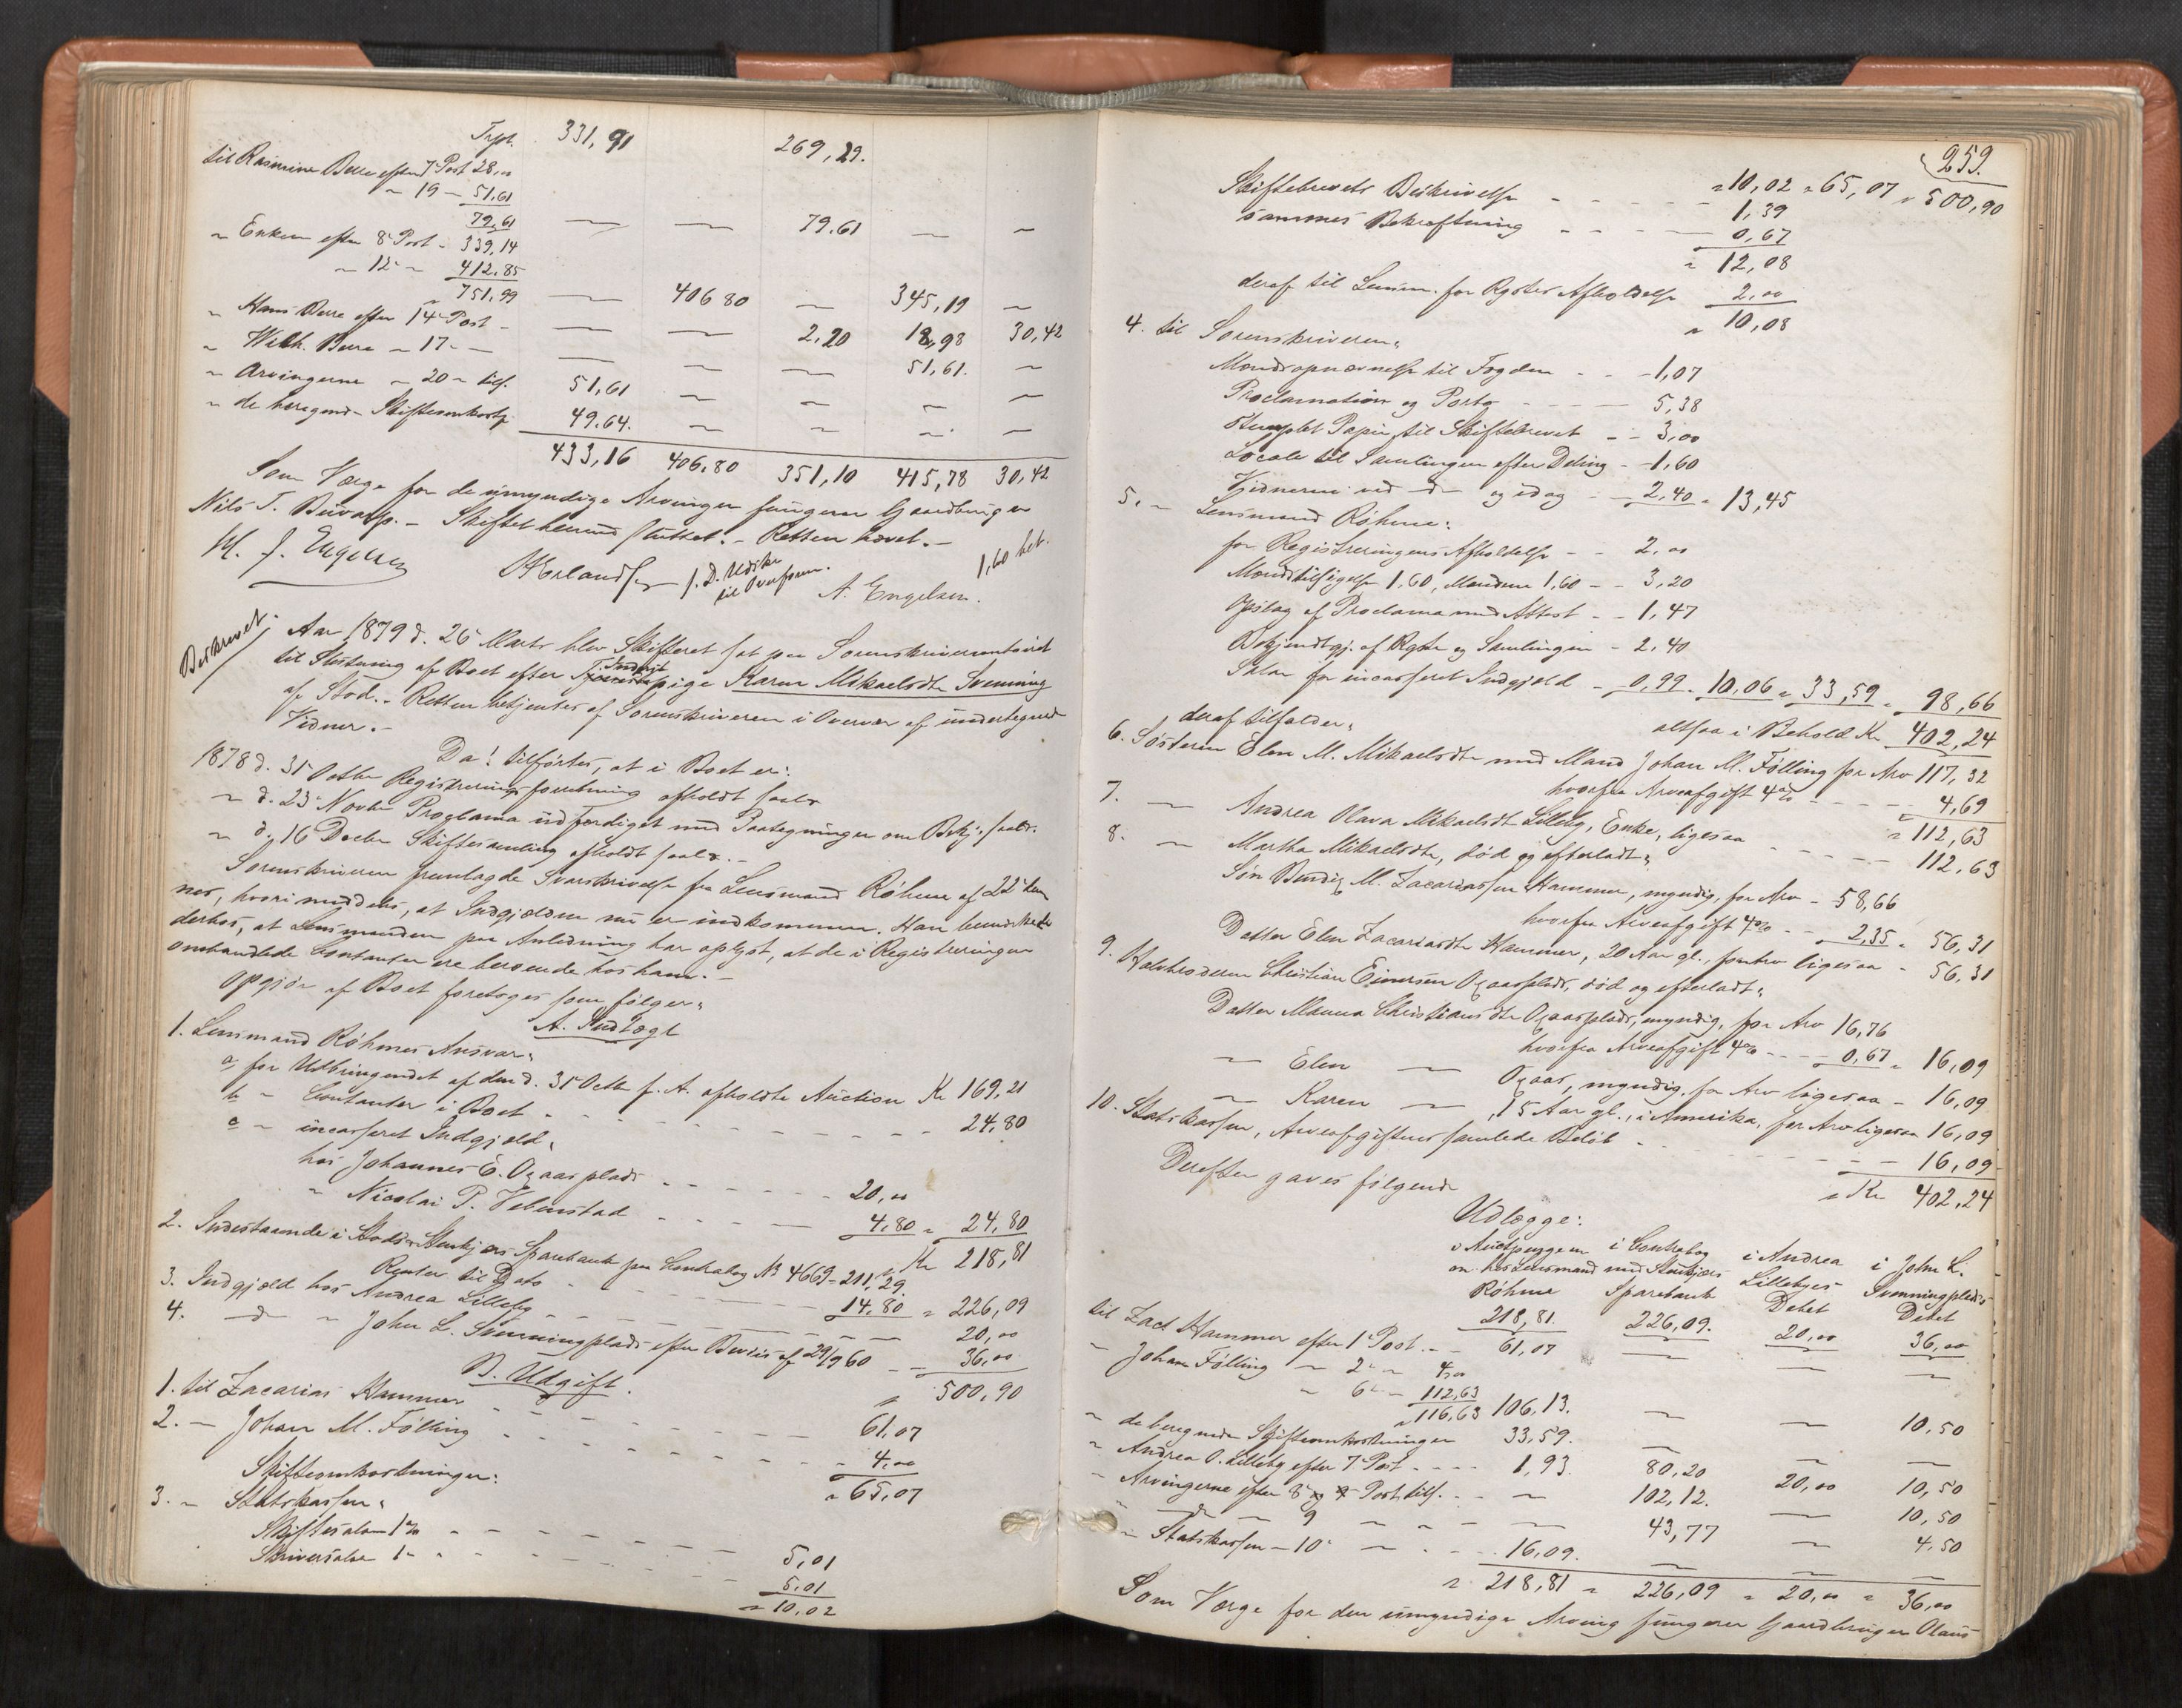 Trpt. 331,91 269,29.
til Rasmine Berre efter 7 Post 28,00
" 19 — 51,61
79,61 — — 79.61 — —
" Enken efter 8 Post - 339,14
" 12 " 412,85
751,99 — 406 80 — 345,19 —
" Hans Berre efter 14 Post - — — 2,20 18,98 30,42
" Wilh. Berre " 17 — — — — 51,61. —
" Arvingerne " 20 " tils. 51,61 — — — —
" de beregnede Skifteomkostn. 49.64. — — — —
433,16 406,80 351,10 415,78 30,42
Som Værge for de umyndige Arvinger fungerer Gaardbruger
Nils T. Buvarp. - Skiftet herved sluttet. - Retten hævet. -
M. J. Engelsen
A. Engelsen.
1,60 bet.
Beskrevet.
Aar 1879 d. 26 Marts blev Skifteret sat paa Sorenskrivercontoiret
til Slutning af Boet efter Inderst pige Karen Mikaelsdtr Svenning
af Stod. - Retten betjentes af Sorenskriveren i Overvær af undertegnede
Vidner. -
Da! tilførtes, at i Boet er:
1878 d. 31 Octbr Registreringsforretning afholdt saal.
" d. 23 Novbr Proclama udfærdiget med Paategninger om Bekj. saal.
" d. 16 Decbr Skiftesamling afholdt saal. -
Sorenskriveren fremlagde Svarskrivelse fra Lensmand Røhme af 22 den-
nes, hvori meddeles, at Indgjælden nu er indkommen. Han bemærkede
derhos, at Lensmanden paa Anledning har oplyst, at de i Registreringen
omhandlede Contanter ere beroende hos ham. -
Opgjør af Boet foretoges som følger:
A. Indtægt
1. Lensmand Røhmes Ansvar:
a, for Udbringendet af den d. 31 Octbr f. A. afholdte Auction Kr 169,21
b " Contanter i Boet - - - - 24,80
c " incasseret Indgjæld:
hos Johannes E. Ogaasplads - - - - 20,00
" Nicolai P. Vebenstad - - - 4,80 " 24,80
Kr 218,81
2. Indestaaende i Stods & Stenkjærs Sparebank paa Contrabog No 4669 - 211,29.
Renter til Dato - - - - 14.80 " 226,09
3. Indgjæld hos Andrea Lilleby - - - - 20,00
4. — d — " John L. Svenningplads efter Bevis af 29/9 60 - - 36,00
" 500,90
B. Udgift.
1. til Zacarias Hammer - - - - 61,07
2. — Johan M. Følling - - - - 4,00
" 65,07
Skifteomkostninger:
3. " Statskassen:
Skiftesalær 1% - - - - 5,01
Skriversalær 1 - - - - 5,01
" 10,02
259.
" 10,02 " 65,07 " 500,90
Skiftebrevets Beskrivelse - - - - 1,39
Sammes Bekræftning - - - - 0,67
" 12,08
deraf til Lensm. for Rgstrs Afholdelse 2,00
" 10,08
4. til Sorenskriveren:
Mandsopnævnelse til Fogden - - 1,07
Proclamation og Porto - - - 5,38
Stemplet Papir til Skiftebrevet - - 3,00
Locale til Samlingen efter Deling - 1,60
Vidnerne ved — d — og idag - - 2,40 " 13,45
5. " Lensmand Røhme:
for Registreringens Afholdelse - - 2,00
Mændstilsigelse 1.60, Mændene 1,60 - - 3,20
Opslag af Proclama med Attest - - 1,47
Bekjendtgj. af Rgstr og Samlingen - 2,40
Salær for incasseret Indgjæld - 0,99 " 10,06 " 33,59 " 98,66
altsaa i Behold Kr 402,24
deraf tilfalder:
6. Søsteren Elen M. Mikaelsdtr med Mand Johan M. Følling for Arv 117,32
hvorfra Arveafgift 4% - - - 4,69
" 112,63
7. — Andrea Olava Mikaelsdtr Lilleby, Enke, ligesaa - - - - 112,63
8. — Martha Mikaelsdtr, død og efterladt:
Søn Bendix M. Zacariassen Hammer, myndig, for Arv - 58,66
hvorfra Arveafgift 4% - - 2,35 " 56,31
Datter Elen Zacariasdtr Hammer, 20 Aar gl., for Arv ligesaa - 56,31
9. Halvbroderen Christian Einersen Ogaasplads, død og efterladt:
Datter Maren Christiansdtr Ogaasplads, myndig, for Arv 16,76
hvorfra Arveafgift 4% - - - 0,67 " 16,09
— Elen — Ogaas, myndig, for Arv ligesaa - 16,09
— Karen — , 15 Aar gl., i Amerika, for Arv ligesaa 16,09
10. Statskassen, Arveafgifternes samlede Beløb - - - - 16,09
" Kr 402,24
Derefter gaves følgende
Udlægge:
i Auctpengene hos Lensmand Røhme
i Contrabog med Stenkjærs Sparebank
i Andrea Lillebyes Debet
i John L. Svenningplads Debet
218,81. 226,09. 20,00 36,00
til Zacs Hammer efter 1 Post - - 61,07 — — —
" Johan Følling " 2 " 4,00
" 6 " 112,63
" 116,63 106,13. — — 10,50
" de beregnede Skifteomkostninger 33,59. — — —
" Andrea O. Lilleby efter 7 Post - - - 1,93. 80,20 20,00 10,50
" Arvingerne efter 8 Post tils. - - — 102,12. — 10,50
" — d — 9 - - - — 43,77 — 4,50
" Statskassen — 10 " - - 16,09. — — —
" 218,81 " 226,09 " 20,00 " 36,00
Som Værge for den umyndige Arving fungerer Gaardbruger Olaus